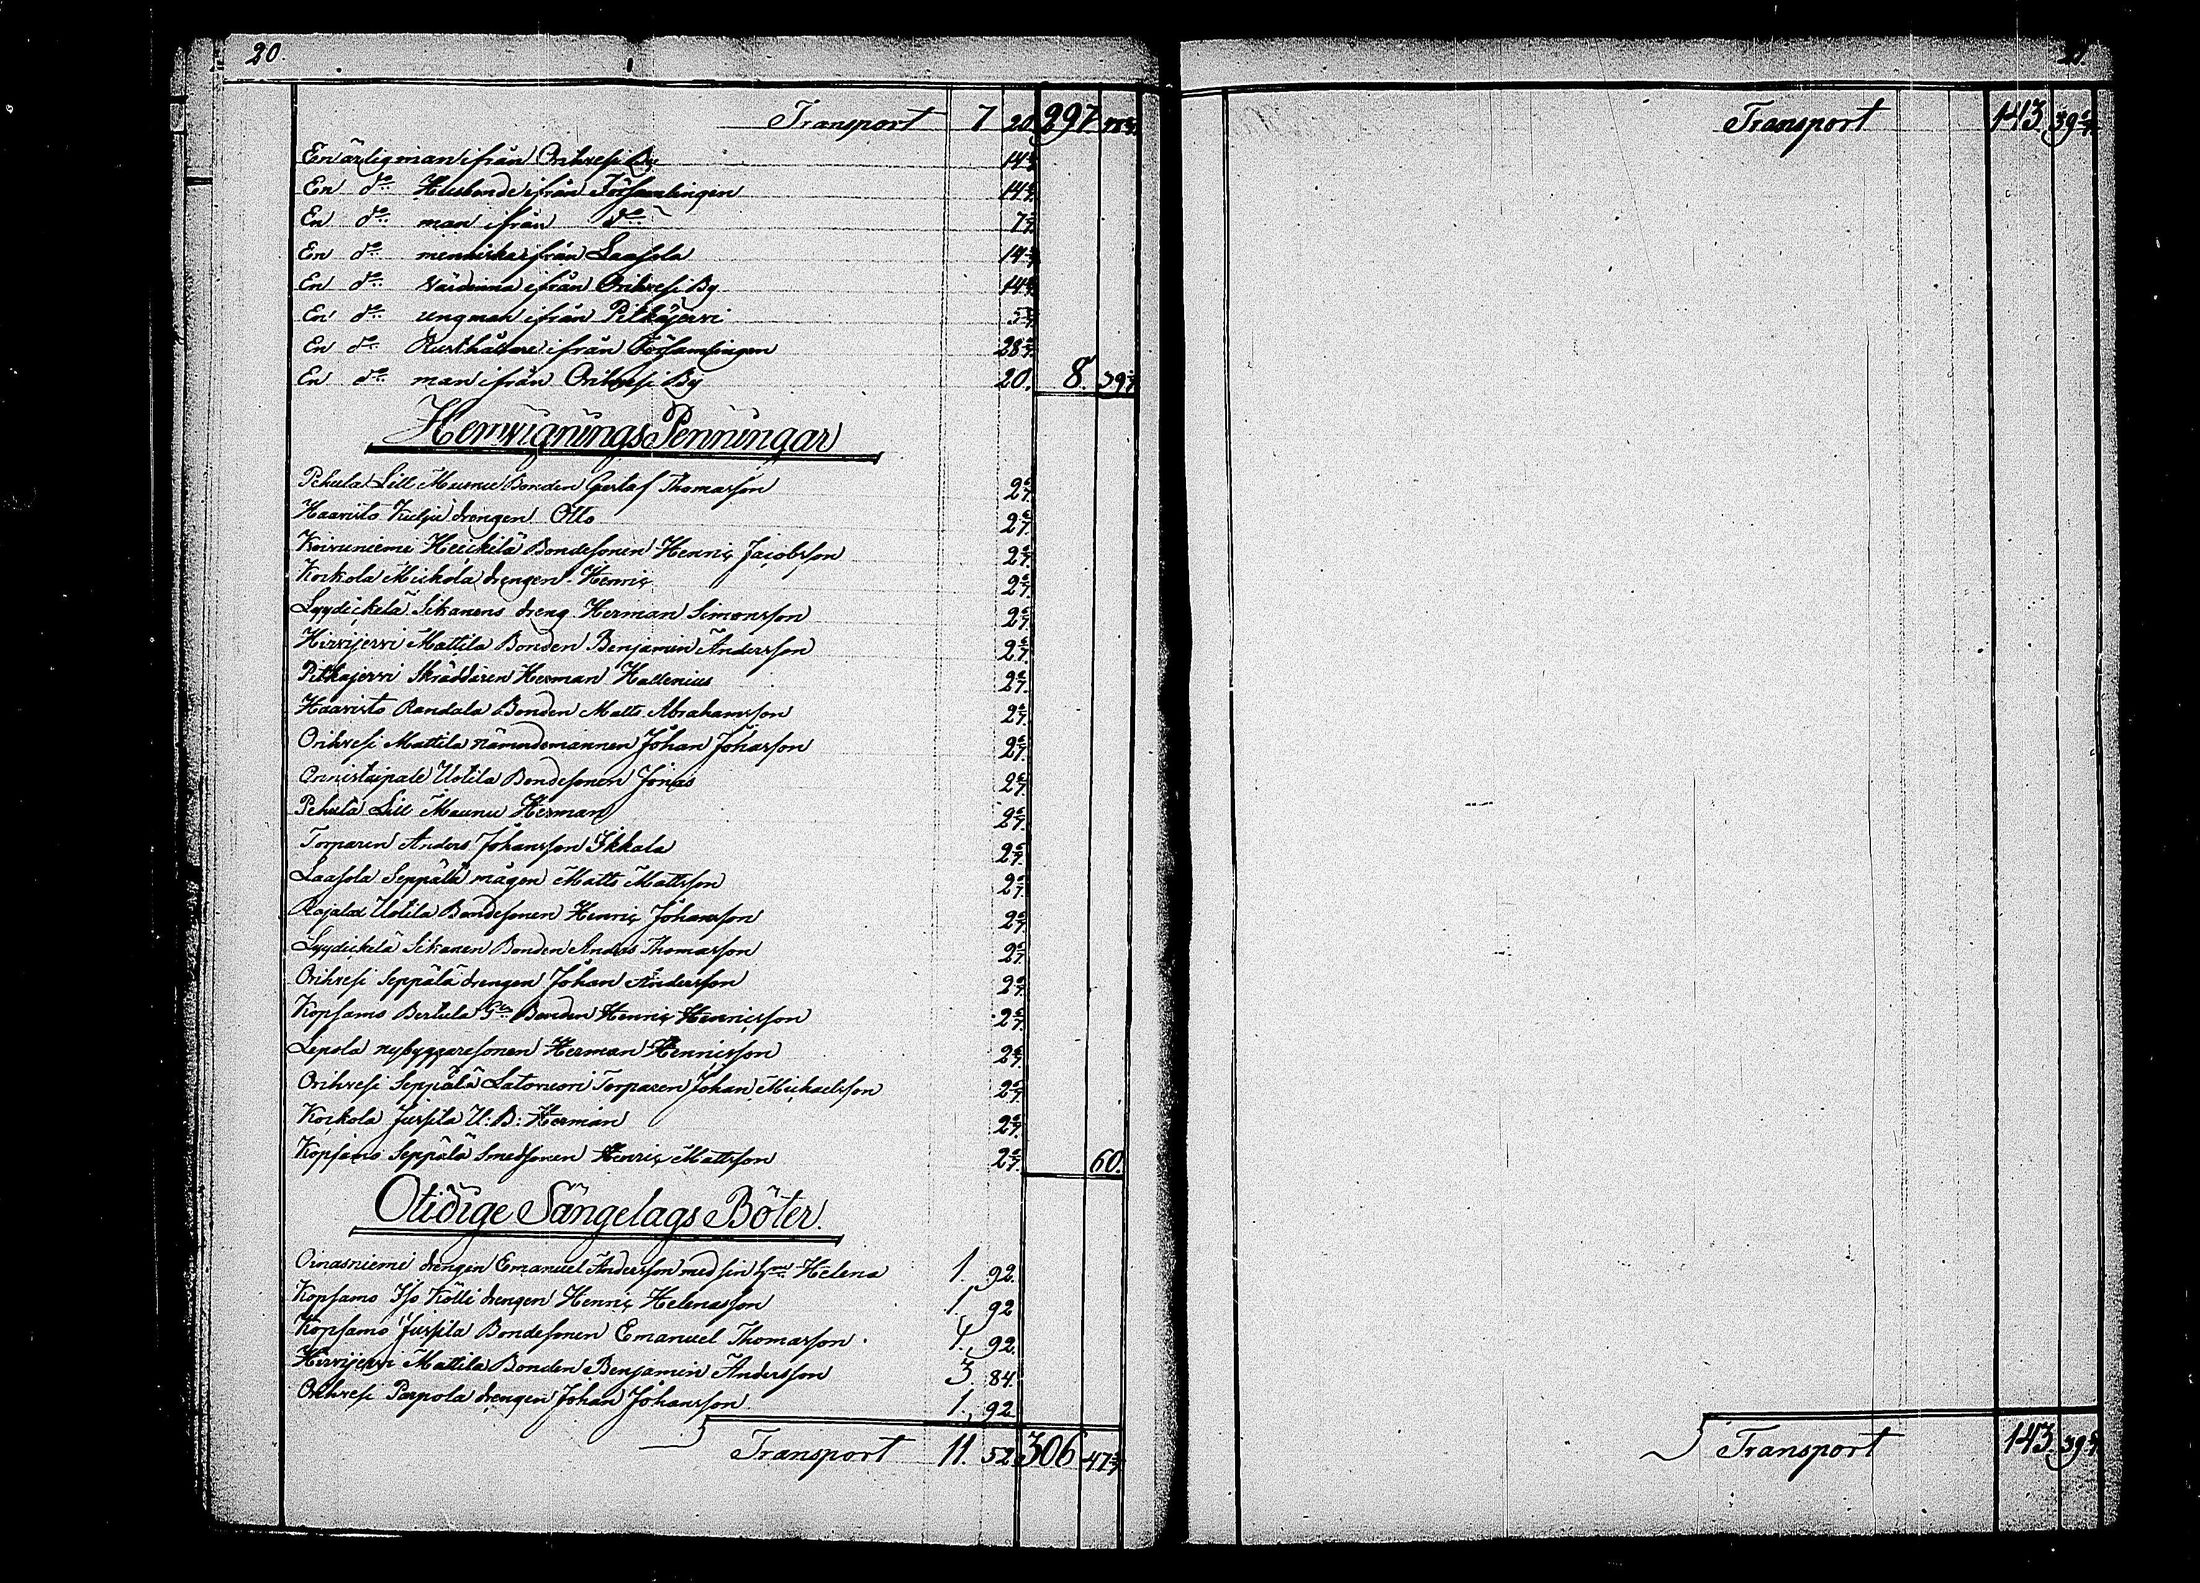 20.
Transport 7 20 297
En ärlig man ifrån Orihvesi By 14 2/7
En do Husbonde ifrån Församlingen 14 2/7
En do man ifrån do 7 1/7
En do menniska ifrån Laasola 14 2/7
En do Värdinna ifrån Orihvesi By 14 2/7
En do ungman ifrån Pitkäjervi 5 5/7
En do Rusthållare ifrån Församlingen 28 4/7
En do man ifrån Orihvesi By 20. 8. 39 3/7
Hemvignings Penningar
Pehula Lill Maunu Bonden Gustaf Thomasson 2 6/7.
Haavisto Kulju drengen Otto 2 6/7.
Koivuniemi Heickilä Bondesonen Henric Jacobsson 2 6/7.
Korkola Mickola drengen Henric 2 6/7.
Lyydickelä Sikanens dreng Herman Simonsson 2 6/7.
Hirvijervi Mattila Bonden Benjamin Andersson 2 6/7.
Pitkajervi Skräddaren Herman Hallenius 2 6/7.
Haavisto Randala Bonden Matts Abrahamsson 2 6/7.
Orihvesi Mattila nämndemannen Johan Johansson 2 6/7.
Onnistaipale Uotila Bondesonen Jonas 2 6/7.
Pehula Lill Maunu Herman 2 6/7.
Torparen Anders Johansson Ikkala 2 6/7.
Laasola Seppälä mågen Matts Mattsson 2 6/7.
Rajala Uotila Bondesonen Henric Johansson 2 6/7.
Lyydickelä Sikanen Bonden Anders Thomasson 2 6/7.
Orihvesi Seppälä drengen Johan Andersson 2 6/7.
Kopsamo Bertula Bonden Henric Henricsson 2 6/7.
Lepola nybyggaresonen Herman Henricsson 2 6/7.
Orihvesi Seppälä Latovuori Torparen Johan Michaelsson 2 6/7.
Korkola Jussila U: B: Herman 2 6/7.
Kopsamo Seppälä Smedsonen Henric Mattsson 2 6/7. 60.
Otidige Sängelags Böter.
Oinasniemi drengen Emanuel Andersson med sin Helena 1. 92.
Kopsamo Iso Kölli drengen Henric Helenasson 1. 92
Kopsamo Jussila Bondesonen Emanuel Thomasson. 1. 92.
Hirvijervi Mattila Bonden Benjamin Andersson 3. 84.
Orihvesi Parpola drengen Johan Johansson 1. 92
Transport 11. 52 306 47 3/7
Transport 143. 39 6/7.
Transport 143. 39 6/7.